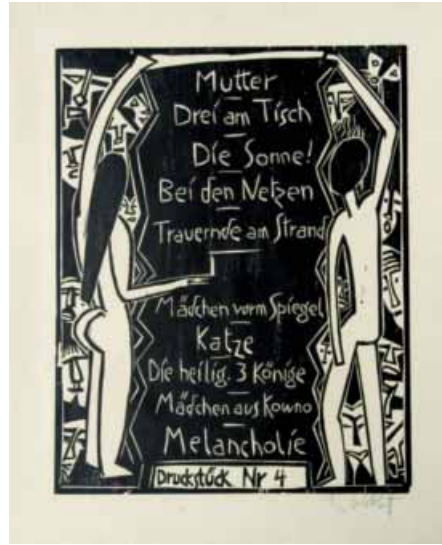 Mutter
Drei am Tisch
Die Sonne!
Bei den Netzen
Trauernde am Strand
Mädchen vorm Spiegel
Katze
Die heilig. 3 Könige
Mädchen aus Kowno
Melancholie
Druckstück Nr 4